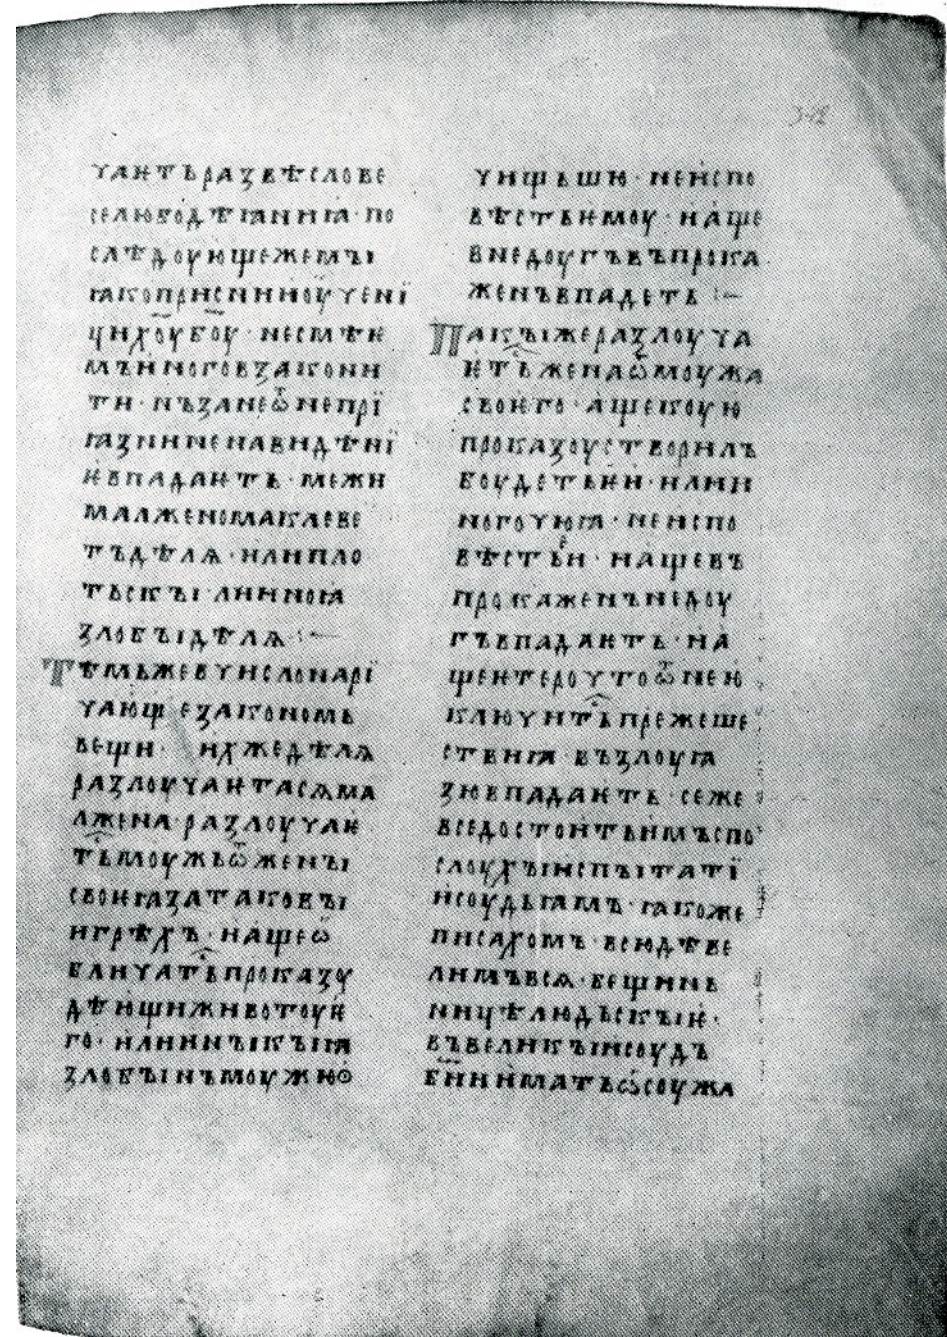 чаѥтьразвѣслове
селюбодѣꙗниꙗ· по
слѣдоующежемъі
ꙗкоприсннноуꙋчені
цихоубоу· несмѣѥ
мъинеговзакони
ти· нъзанеѿнепрї
ꙗзнинена­видѣнї
ѥвпадаѥть· межи
малженомаклеве
тъдѣлѧ· илипло
тьскъі· лииноꙗ
злобъідѣлѧ :~
Тѣмьжевчислонарї
чающ езакономь
вещи· ихжедѣлѧ
разлоучаѥтасѧма
лжена· разлоучаѥ
тьмоужьѿженъі
своѥꙗзатаковъі
игрѣхъ· нащеѿ
бличатьпроказоу
дѣющиживотоуѥ
го· илииинъікъіꙗ
злобъінъмоужюѡ
чищьшю· неиспо
вѣстьѥмоу· наще
внедоугъвъпрока
женъвпадеть :~
Пакъіжеразлоуча
ѥтьженаѿмоужа
своѥго· ащекоую
проказоустворилъ
боудетьѥи· илии
ногоучюꙗ· неиспо
вѣстьеи· нащевъ
прокаженънедоу
гъвпадаѥть· на
щеѥтероучтоѿнею
ключитьпрежеше
ствиꙗ· възлоуꙗ
зювпадаѥть· сеже
вседостоитьимъспо
слоухъіиспъітатї
исоудьꙗмъ· ꙗкоже
писахомъ· всюдѣве
лимъвсѧ· вещинь
ницѣлюдьскъіѥ·
въвеликъіисоудъ
бииниматьѡсоужа